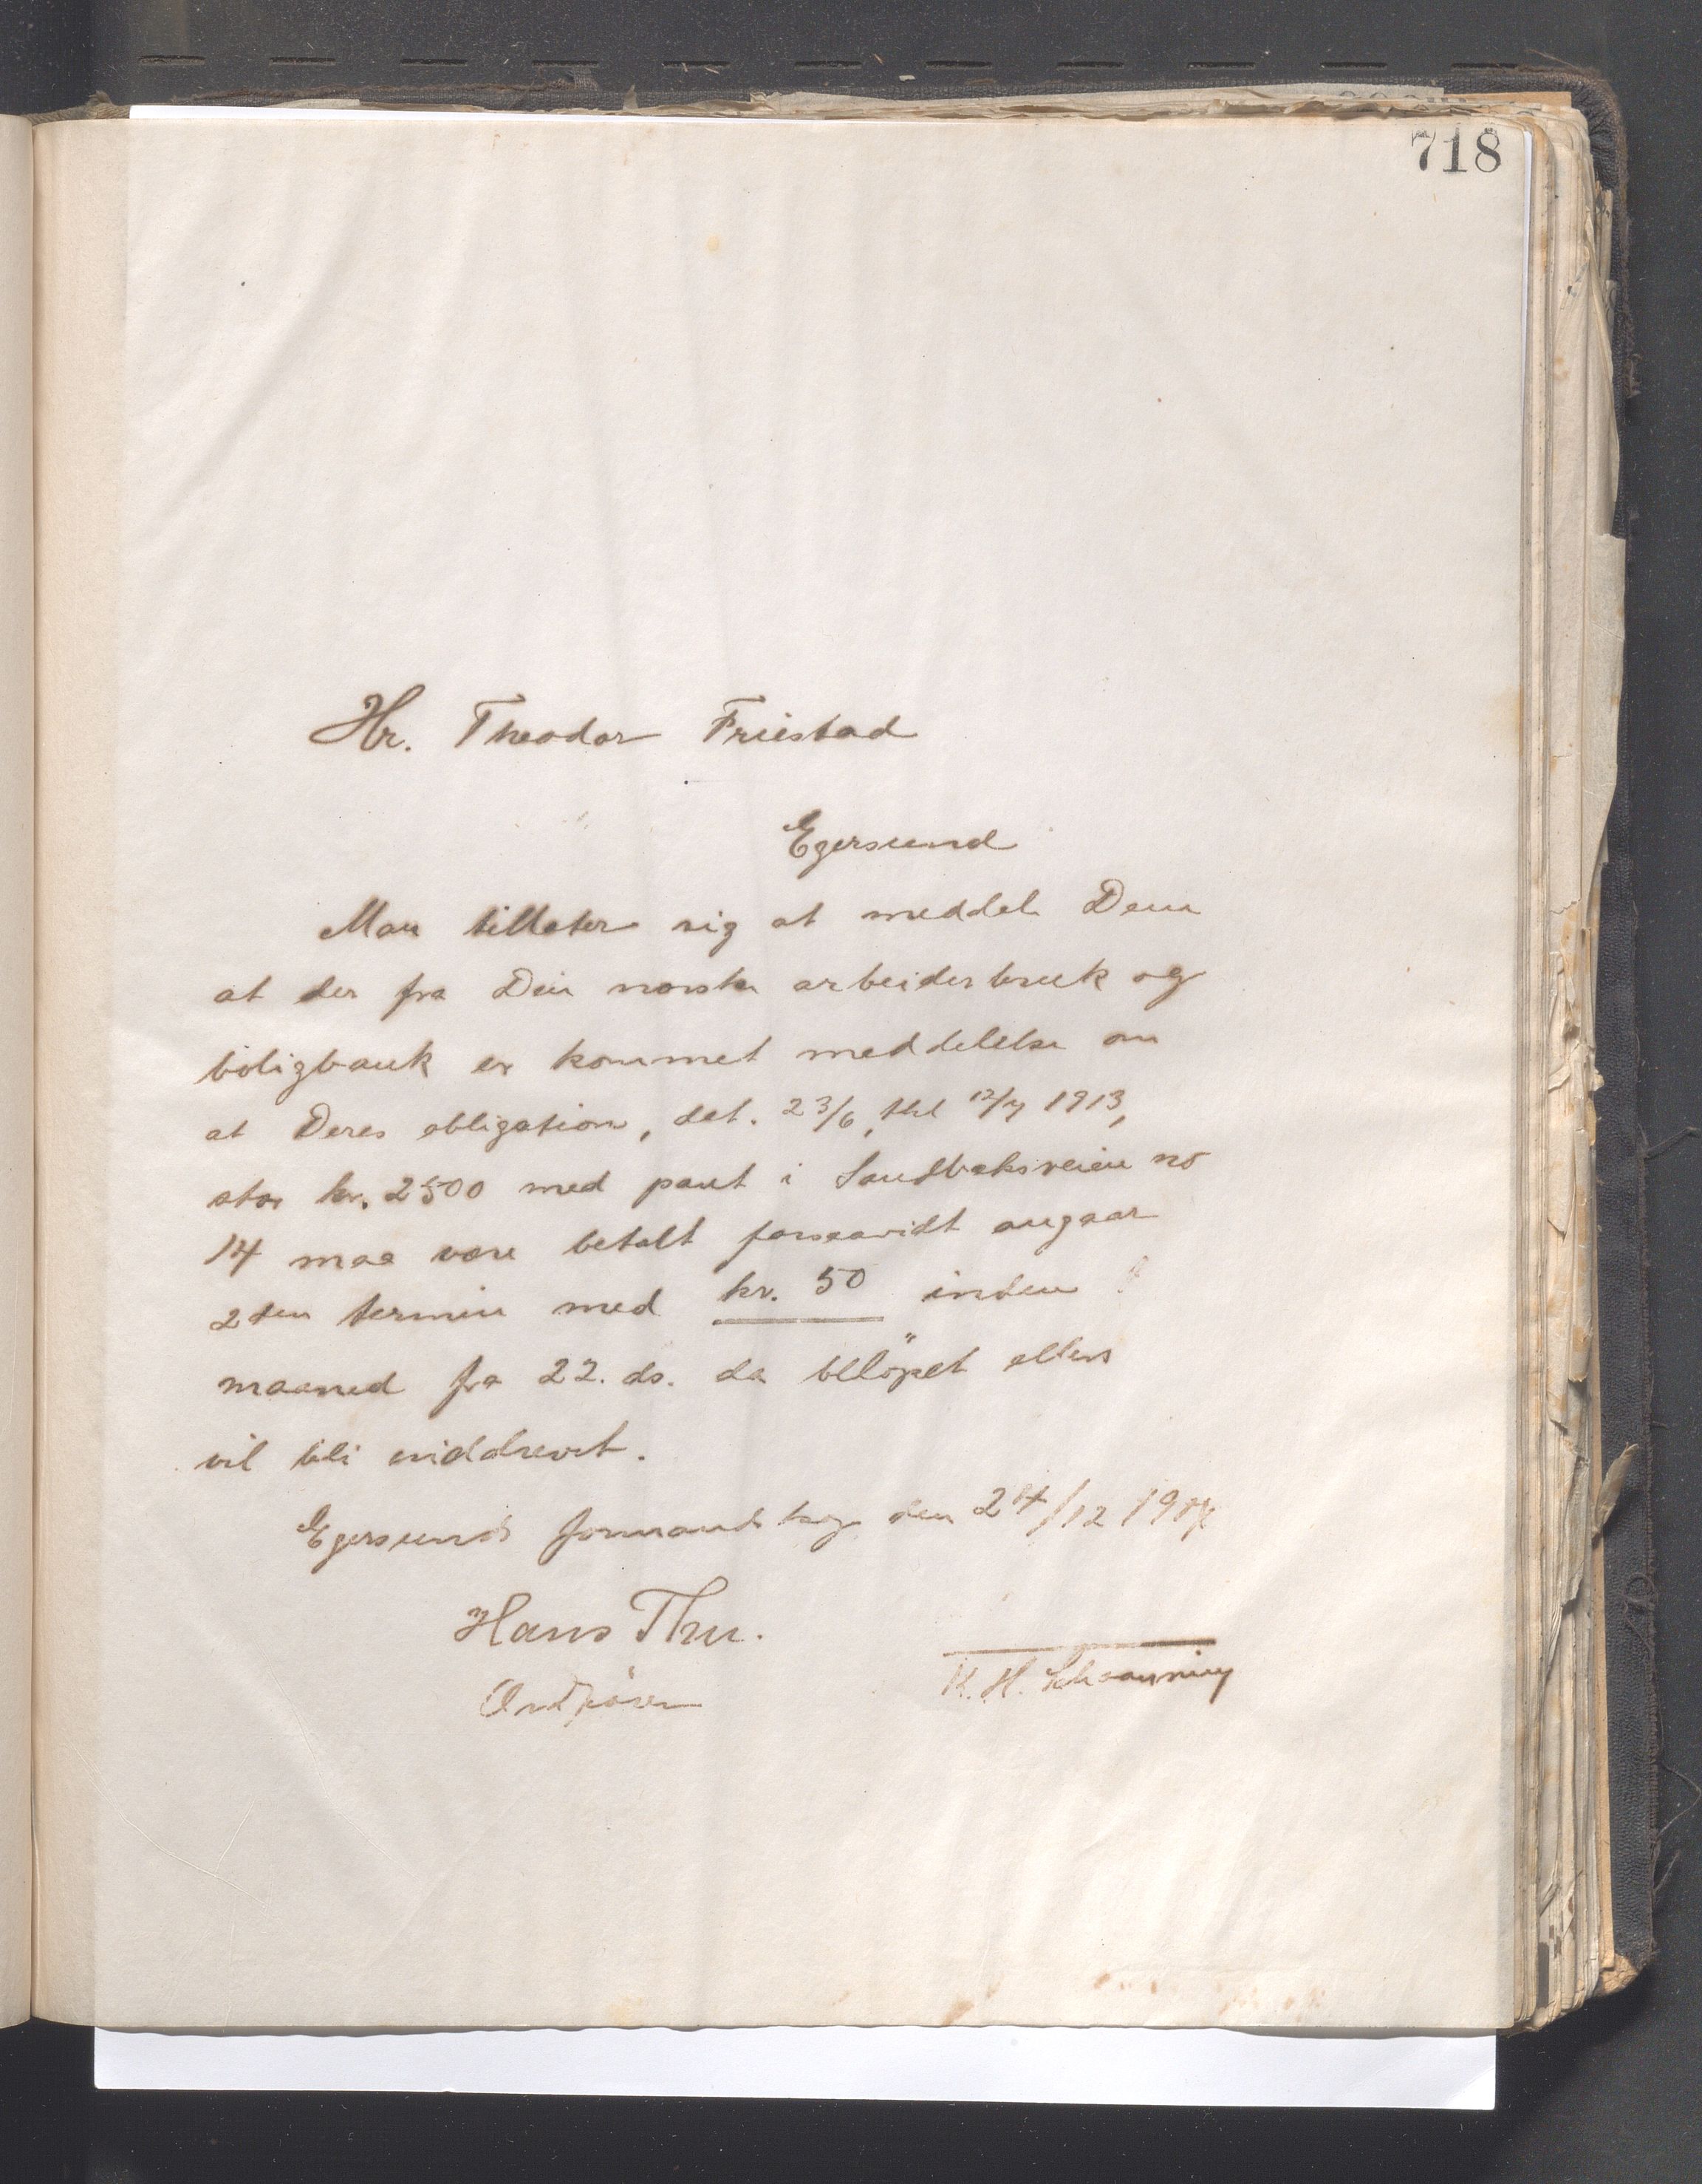 718
Hr. Theodor Friestad
Egersund
Man tillater sig at meddele Dem
at der fra Den norske arbeiderbruk og
boligbank er kommet meddelelse om
at Deres obligation, dat. 23/6, thl 12/7 1913,
stor kr. 2500 med pant i Sandbaksveien no
14 maa være betalt forsaavidt angaar
2den termin med kr. 50 inden 1
maaned fra 22. ds. da belöpet ellers
vil bli inddrevet.
Egersunds formandskap den 24/12 1917
Hans Thu.
Ordförer
K. H. Schaanning